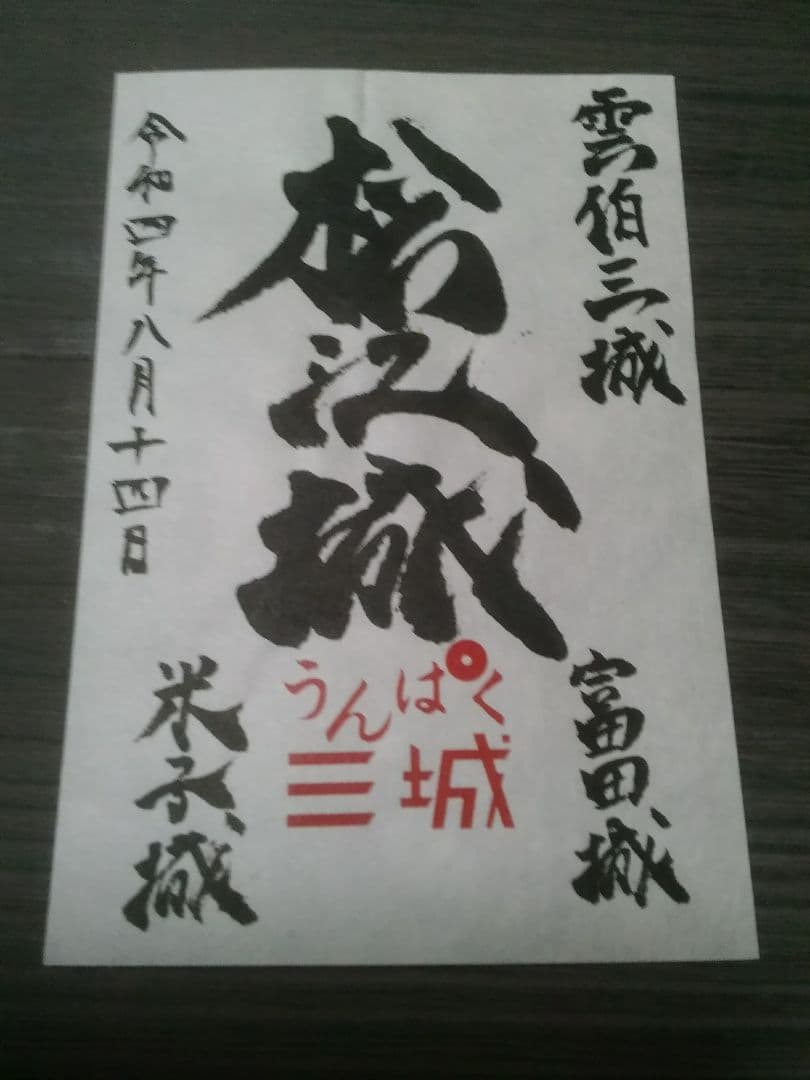 雲伯三城
松江城
令和四年八月十四日
富田城
うんぱく
三城
米子城